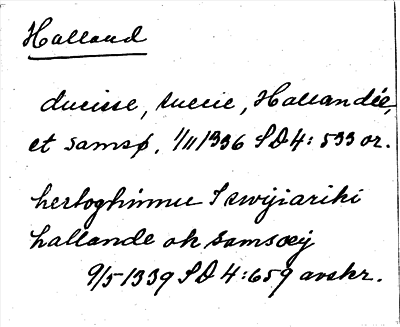 Halland
ducisse, suecie, Hallandie,
et samsø, 1/11 1336 SD 4: 533 or.
hertoghinnu I swijiariki
hallande ok samsøej
9/5 1339 SD 4:659 avskr.